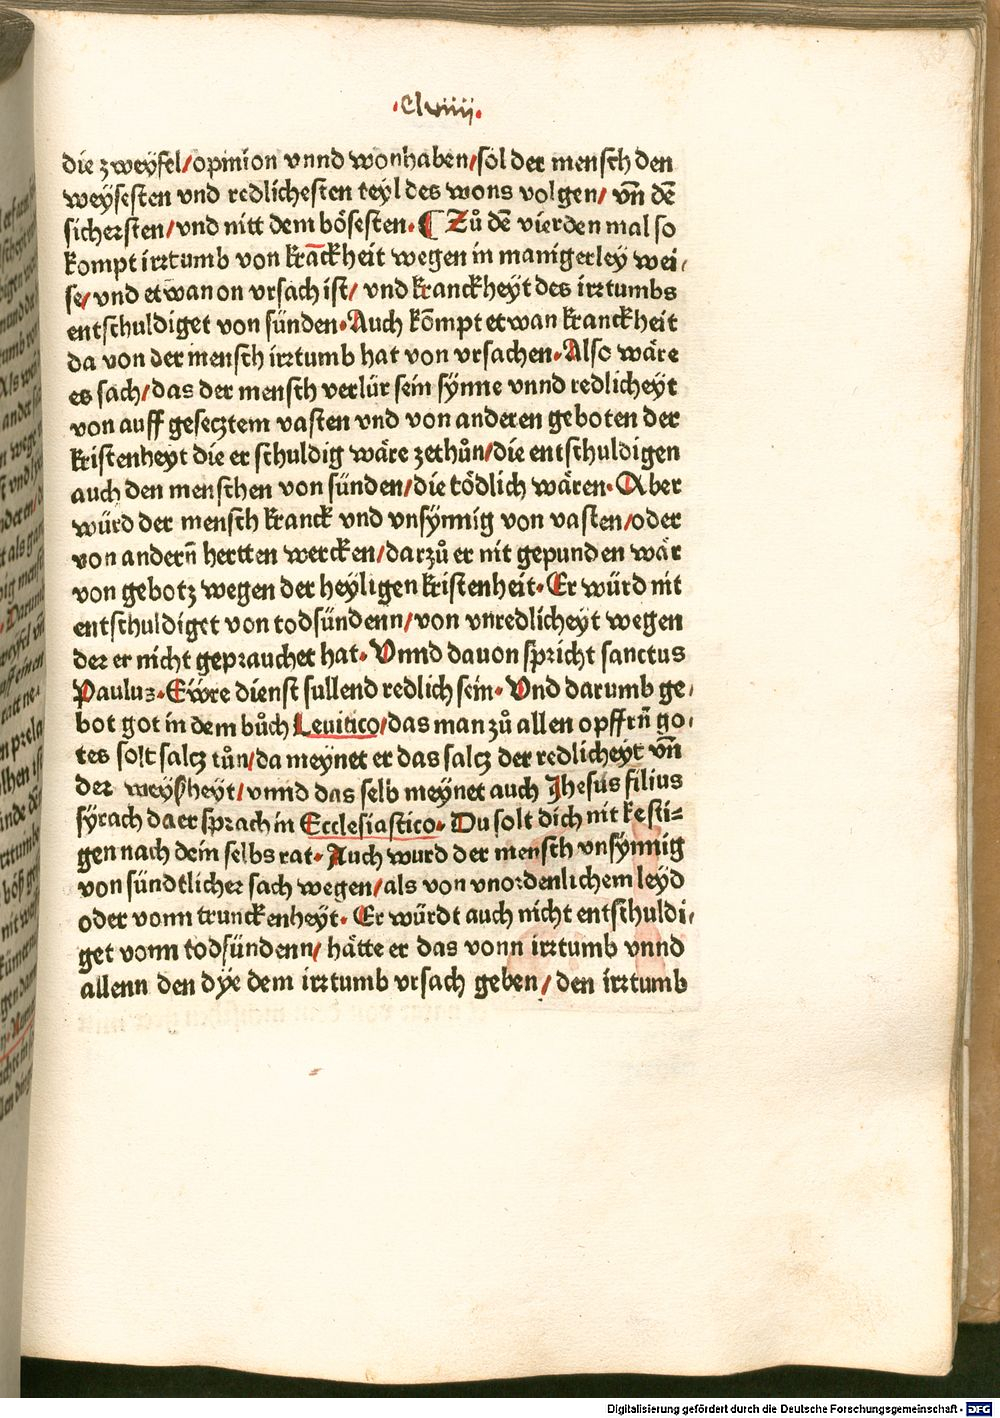 ·Clviiij·
die zweyfel/opinion vnnd wonhaben/sol der mensch den
weysesten vnd redlichesten teyl des wons volgen/ vn̄ dē
sichersten/vnd nitt dem bösesten. ¶ Zů dē vierden mal so
kompt irrtumb von kranckheit wegen in manigerley wei⸗
se/ vnd etwan on vrsach ist/ vnd kranckheyt des irrtumbs
entschuldiget von sünden. Auch kōmpt etwan kranckheit
da von der mensch irrtumb hat von vrsachen. Also wäre
es sach/das der mensch verlür sein synne vnnd redlicheyt
von auff gesecztem vasten vnd von anderen geboten der
kristenheyt die er schuldig wäre zethůn/die entschuldigen
auch den menschen von sünden/die tödlich wären. Aber
würd der mensch kranck vnd vnsynnig von vasten/oder
von andern̄ hertten wercken/darzů er nit gepunden wär
von gebotz wegen der heyligen kristenheit. Er würd nit
entschuldiget von todsündenn/von vnredlicheyt wegen
der er nicht geprauchet hat. Vnnd dauon spricht sanctus
Pauluz. Ewre dienst sullend redlich sein. Vnd darumb ge⸗
bot got in dem bůch Leuitico/das man zů allen opffrn̄ go⸗
tes solt salcz tůn/da meynet er das salcz der redlicheyt vn̄
der weyßheyt/ vnnd das selb meynet auch Jhesus filius
syrach da er sprach in Ecclesiastico. Du solt dich nit kesti⸗
gen nach dein selbs rat. Auch wurd der mensch vnsynnig
von sündtlicher sach wegen/als von vnordenlichem leyd
oder vonn trunckenheyt. Er würdt auch nicht entschuldi⸗
get vonn todsündenn/ hätte er das vonn irrtumb vnnd
allenn den dye dem irrtumb vrsach geben/ den irrtumb
Digitalisierung gefördert durch die Deutsche Forschungsgemeinschaft - DFG